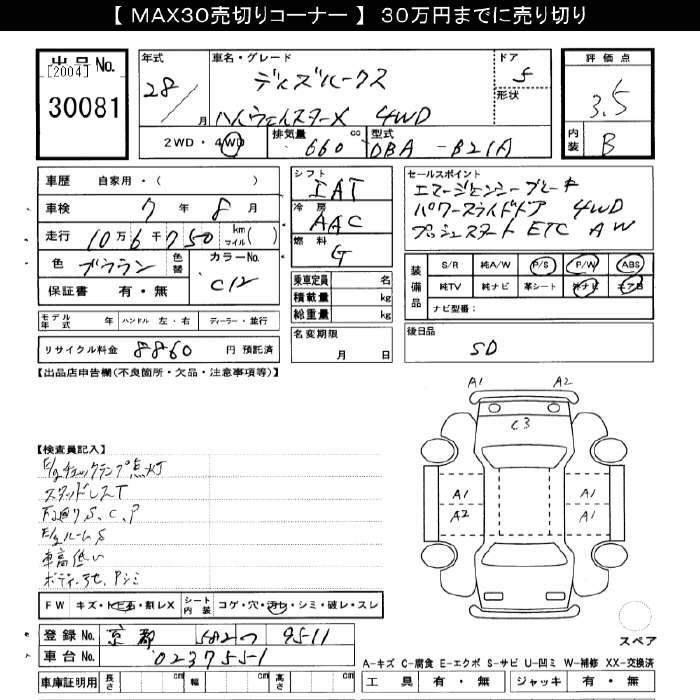 【 MAX30売切りコーナー 】 30万円までに売り切り
出品No.
[2004]
30081
年式
28
月
車名・グレード
デイズルークス
ハイウェイスターX 4WD
ドア
5
形状
2WD・4WD
排気量
660 cc
型式
DBA-B21A
評価点
3.5
内装
B
車歴 自家用・( )
車検 7年8月
走行 10万6千750 km マイル( )
色 ブラウン
色替
カラーNo.
C12
保証書 有・無
モデル年式 年 ハンドル 左・右 ディーラー・並行
リサイクル料金 8860 円 預託済
シフト
IAT
冷房
AAC
燃料
G
乗車定員 名
積載量 kg
総重量 kg
名変期限
月 日
セールスポイント
エマージェンシーブレーキ
パワースライドドア 4WD
プッシュスタート ETC AW
装備品
S/R 純A/W P/S P/W ABS
純TV 純ナビ 革シート 社ナビ エアB
ナビ型番:
後日品
SD
【出品店申告欄(不良箇所・欠品・注意事項等)】
【検査員記入】
E/gチェックランプ点灯
スタッドレスT
S、C、P
E/gルームS
車高低い
A1 A2
C3
A1 A1
A2 A1
スペア
FW キズ・トビ石・割レX
シート内装 コゲ・穴・汚レ・シミ・破レ・スレ
登録No. 京都 582 つ 95-11
車台No. 0237551
車庫証明用 長さ cm 幅 cm 高さ cm
A-キズ C-腐食 E-エクボ S-サビ U-凹ミ W-補修 XX-交換済
工具 有・無 ジャッキ 有・無